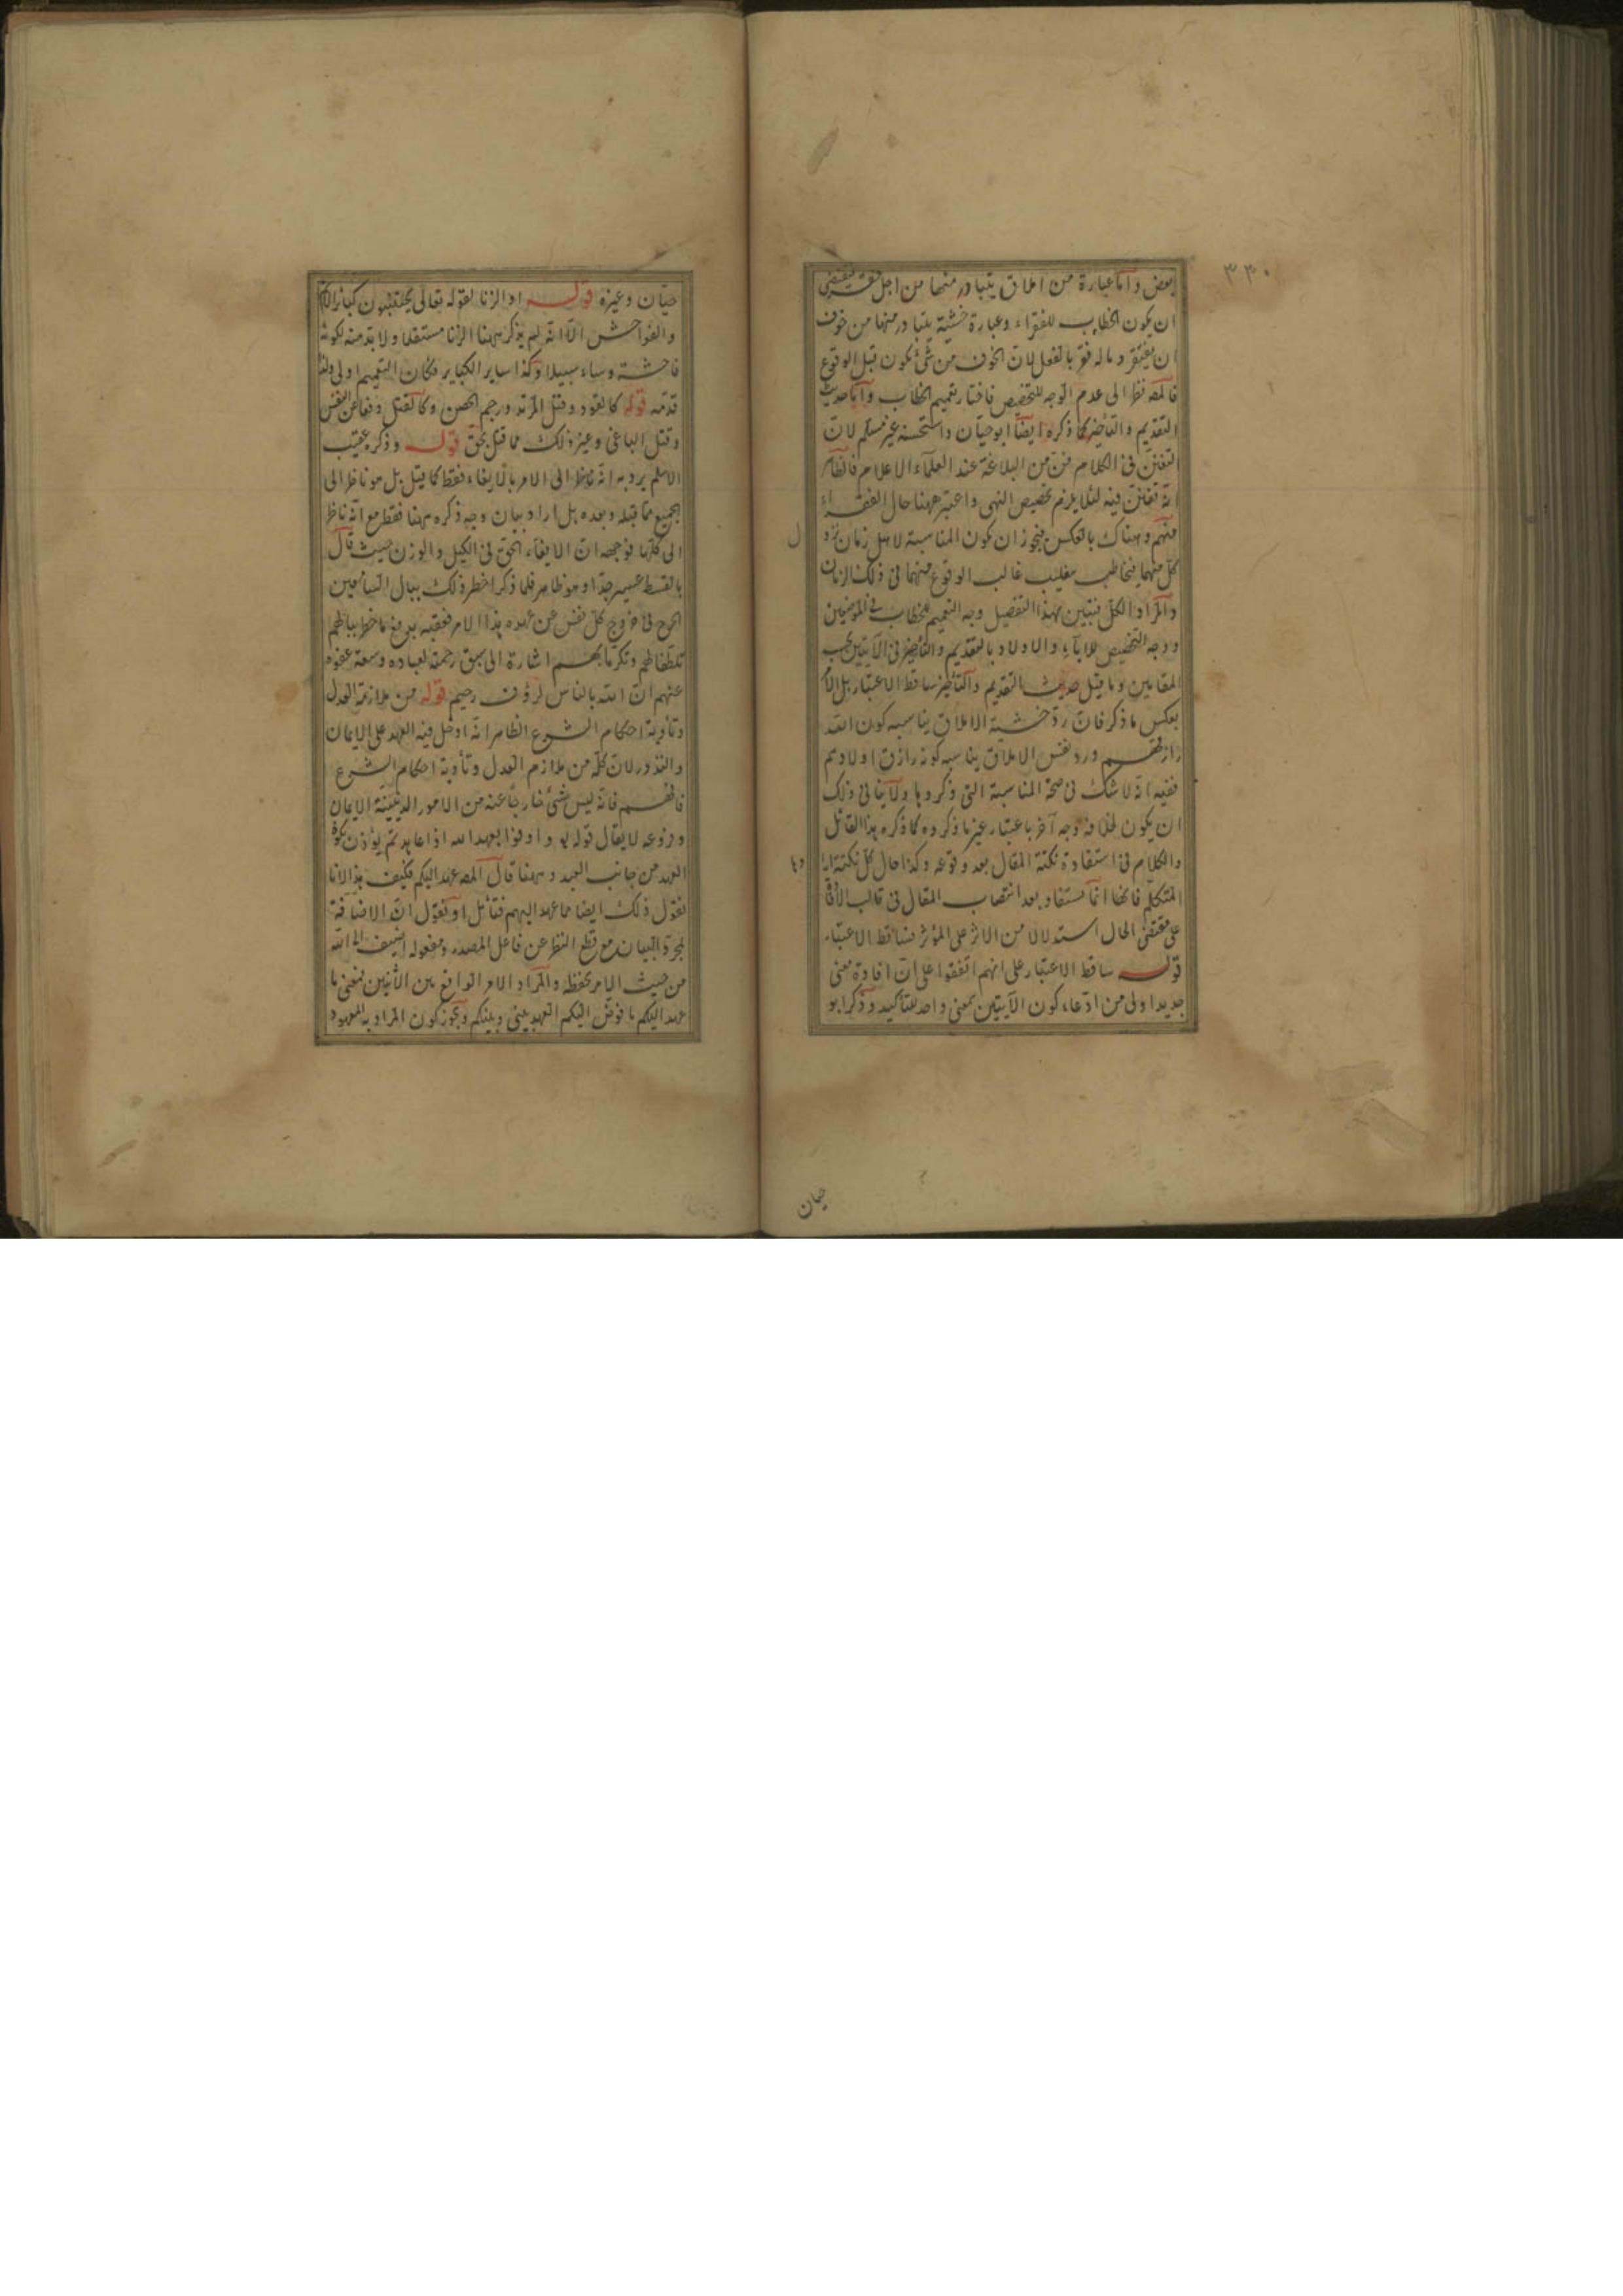 ٣٣٠
بعض واما عبارة من املاق يتبادر منها من اجل فقر فيقتضى
ان يكون الخطاب للفقراء وعبارة خشية يتبادر منها من خوف
ان يفتقر وماله فقر بالفعل لان الخوف من شئ يكون قبل الوقوع
فالمصه نظر الى عدم الوجه للتخصيص فاختار تعميم الخطاب واما حديث
التقديم والتأخير كما ذكره ايضا ابو حيان واستحسنه غير مسلم لان
التفنن فى الكلام فن من البلاغة عند العلماء الاعلام فالظاهر
انه تفنن فيه لئلا يلزم تخصيص النهى واعتبر ههنا حال الفقراء
منهم وهناك بالعكس فيجوز ان يكون المناسبة لاهل زمان نزول
كل منهما فيخاطب بتغليب غالب الوقوع منهما فى ذلك الزمان
والمراد الكل فتبين بهذا التفصيل وجه التعميم للخطاب فى الموضعين
ووجه التخصيص للاباء والاولاد بالتقديم والتأخير فى الآيتين بحسب
المقامين وما قيل حديث التقديم والتأخير ساقط الاعتبار بل الامر
بعكس ما ذكر فان رد خشية الاملاق يناسبه كون الله
رازقهم ورد نفس الاملاق يناسبه كونه رازق اولادهم
ففيه انه لا شك فى صحة المناسبة التى ذكروها ولا ينافى ذلك
ان يكون لخلافه وجه آخر باعتبار غير ما ذكروه كما ذكره هذا القائل
والكلام فى استفادة نكتة المقال بعد وقوعه وكذا حال كل نكتة
المتكلم فانها انما تستفاد بعد انتصاب المقال فى قالب
على مقتضى الحال استدلالا من الاثر على المؤثر فساقط الاعتبار
قوله ساقط الاعتبار على انهم اتفقوا على ان افادة معنى
جديد اولى من ادعاء كون الآيتين بمعنى واحد للتأكيد وذكر ابو
حيان
حيان وغيره قوله او الزنا لقوله تعالى يجتنبون كبائر الاثم
والفواحش الا انه لم يذكر ههنا الزنا مستقلا ولا بد منه لكونه
فاحشة وساء سبيلا وكذا ساير الكبائر فكان التعميم اولى ولذا
قدمه قوله كالقود وقتل المرتد ورجم المحصن وكالقتل دفعا عن النفس
وقتل الباغى وغير ذلك مما قتل بحق قوله وذكره عقيب
الاسلم يرد به انه ناظر الى الامر بالايفاء فقط كما قيل بل هو ناظر الى
الجميع مما قبله وبعده بل اراد بيان وجه ذكره ههنا فقط مع انه ناظر
الى كلها فوجهه ان الايفاء الحق فى الكيل والوزن حيث قال
بالقسط عسير جدا وهو ظاهر فلما ذكر اخطر ذلك ببال السامعين
الحرج فى خروج كل نفس عن عهده هذا الامر فعقبه برفع ما خطر ببالهم
تلطفا لهم وتكرما بهم اشارة الى سبق رحمته لعباده وسعة عفوه
عنهم ان الله بالناس لرؤف رحيم قوله من ملازمة العدل
وتأدية احكام الشرع الظاهر انه ادخل فيه العهد على الايمان
والنذور لان كله من ملازم العدل وتأدية احكام الشرع
فافهم فانه ليس شئ خارجا عنه من الامور الدينية الايمان
وفروعه لا يقال قوله تع واوفوا بعهد الله اذا عاهدتم يؤذن بكون
العهد من جانب العبد وههنا قال المصه عهد اليكم فكيف هذا لانا
نقول ذلك ايضا مما عهد اليهم فتأمل او نقول ان الاضافة
لمجرد البيان مع قطع النظر عن فاعل المصدر ومفعوله اضيف الى الله
من حيث الامر بحفظه والمراد الامر الواقع بين الاثنين فمعنى ما
عهد اليكم ما فوض اليكم العهد بينى وبينكم ويجوز كون المراد به المعهود